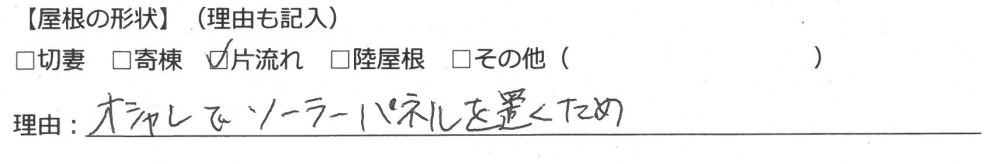 【屋根の形状】（理由も記入）
□切妻 □寄棟 ☑片流れ □陸屋根 □その他（ ）
理由：オシャレでソーラーパネルを置くため